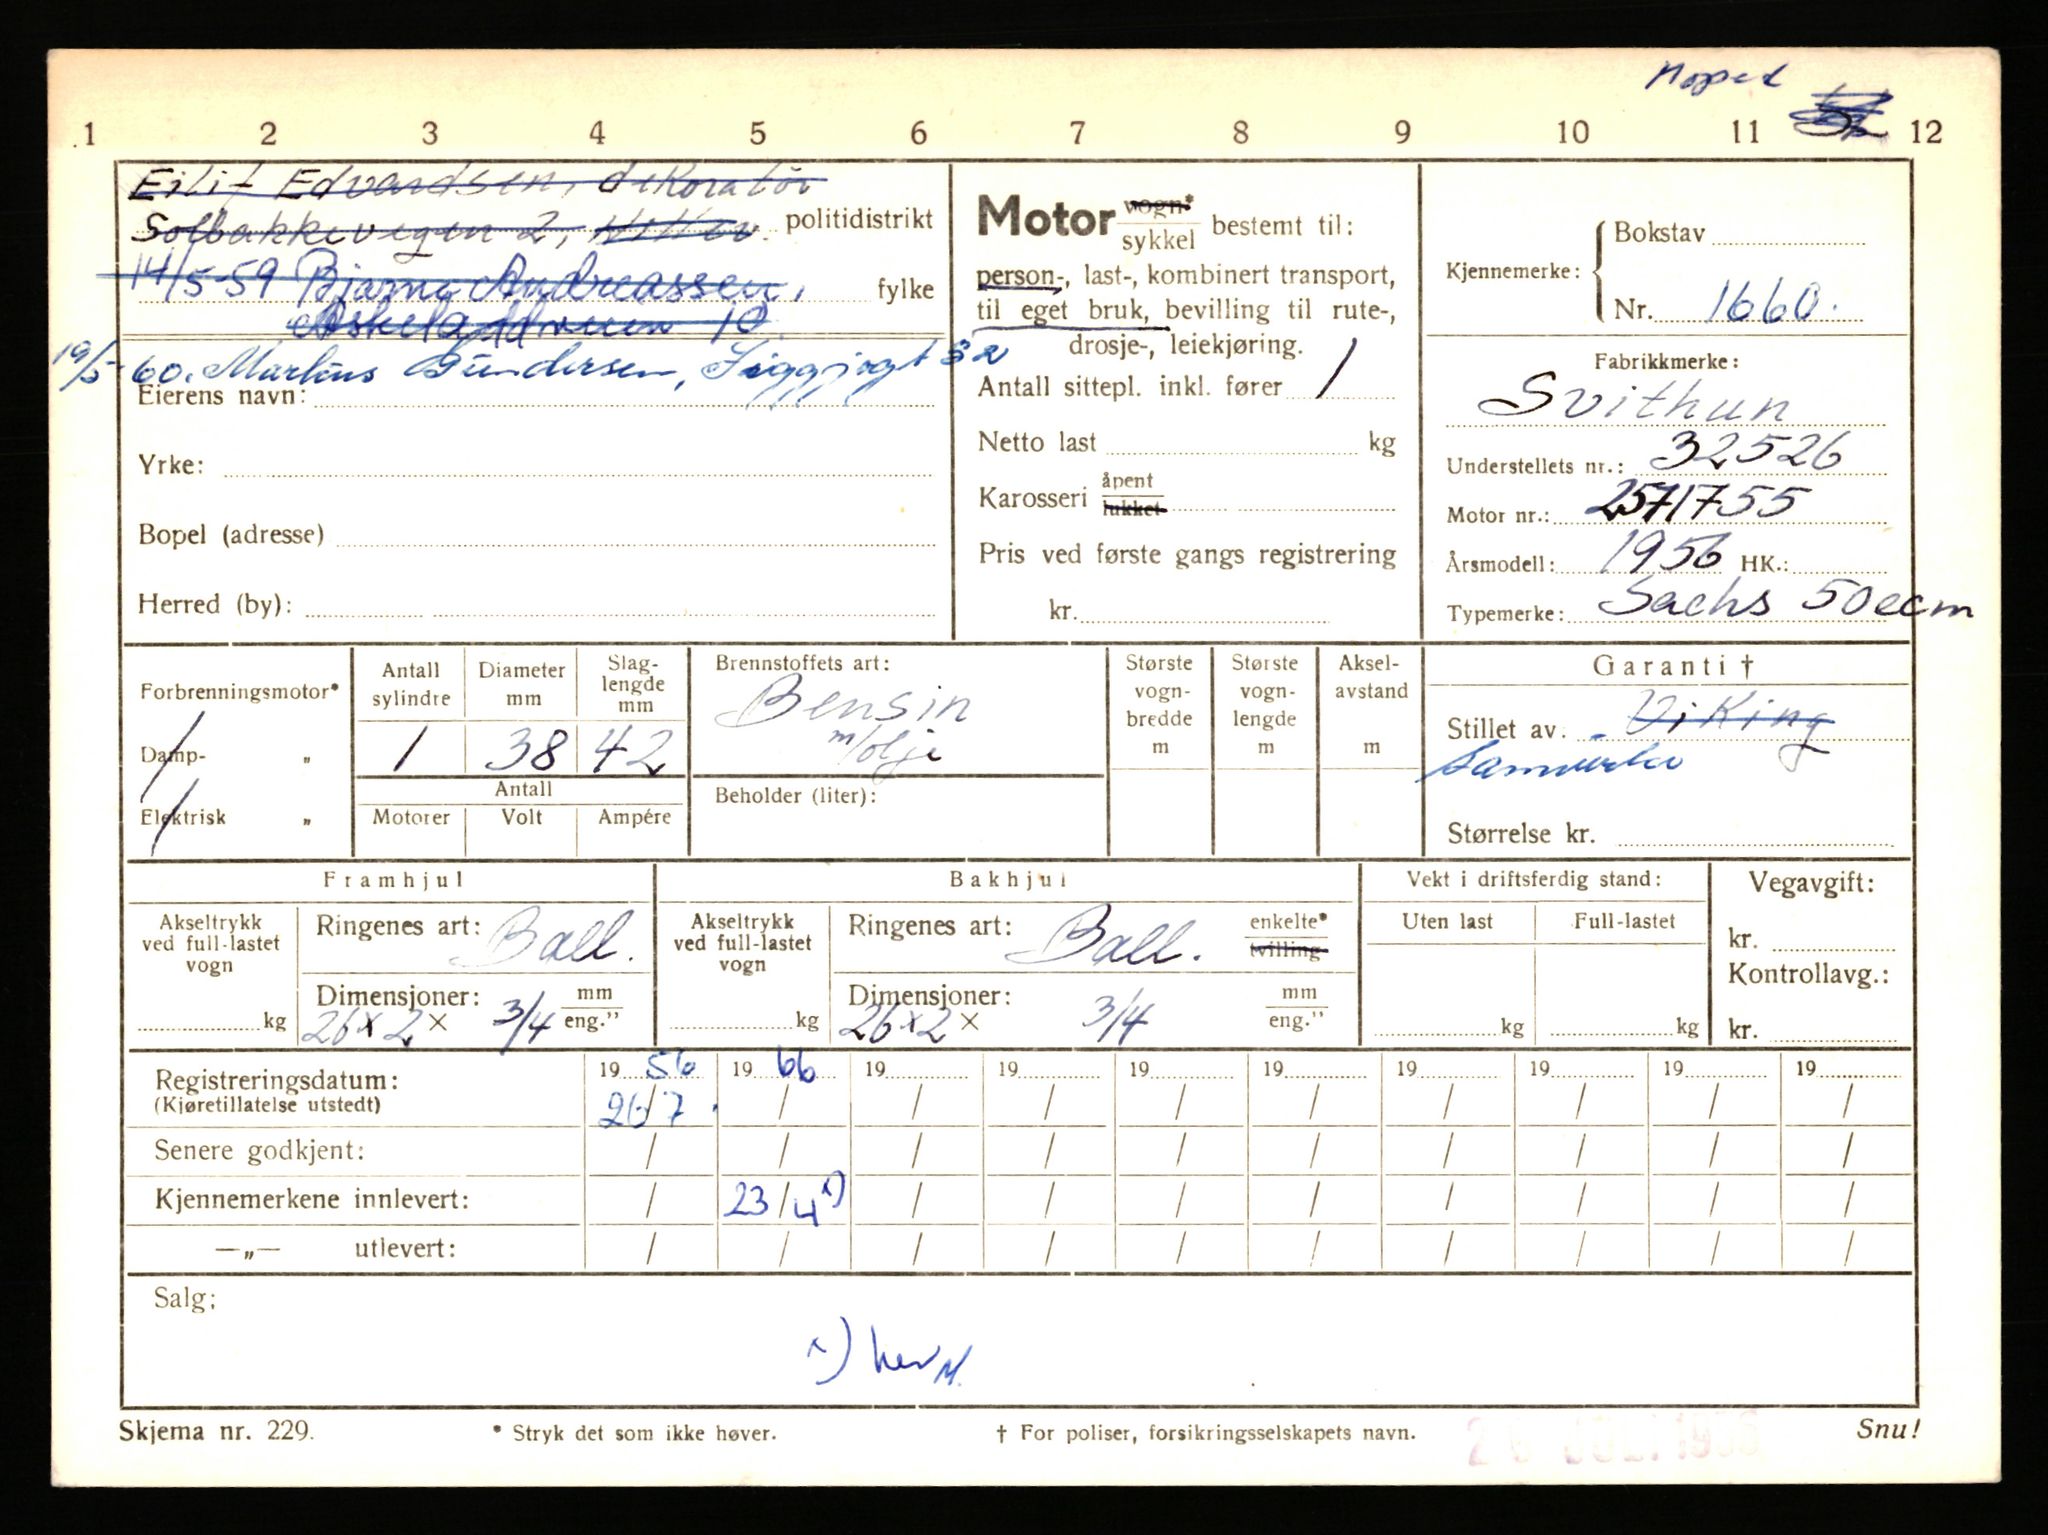 Moped
1 2 3 4 5 6 7 8 9 10 11 12
Eilif Edvardsen, dekoratör
Solbakkevegen 2, politidistrikt
14/5-59 Bjarne Andreassen, fylke
Askeladdveien 10
19/5-60. Martins Gundersen, Siggjogt 32
Eierens navn:
Yrke:
Bopel (adresse)
Herred (by):
Motor vogn* sykkel bestemt til:
person-, last-, kombinert transport,
til eget bruk, bevilling til rute-,
drosje-, leiekjøring.
Antall sittepl. inkl. fører 1
Netto last kg
Karosseri åpent lukket
Pris ved første gangs registrering
kr.
Kjennemerke: Bokstav
Nr. 1660.
Fabrikkmerke:
Svithun
Understellets nr.: 32526
Motor nr.: 2571755
Årsmodell: 1956 HK.:
Typemerke: Sachs 50ccm
Forbrenningsmotor*
Damp- „
Elektrisk „
Antall sylindre 1
Diameter mm 38
Slag-lengde mm 42
Antall
Motorer Volt Ampére
Brennstoffets art:
Bensin
m/olje
Beholder (liter):
Største vogn-bredde m
Største vogn-lengde m
Aksel-avstand m
Garanti †
Stillet av. Viking
Samvirke
Størrelse kr.
Framhjul
Akseltrykk ved full-lastet vogn
kg
Ringenes art: Ball.
Dimensjoner: mm eng."
26 x 2 x 3/4
Bakhjul
Akseltrykk ved full-lastet vogn
kg
Ringenes art: Ball. enkelte* tvilling
Dimensjoner: mm eng."
26 x 2 x 3/4
Vekt i driftsferdig stand:
Uten last Full-lastet
kg kg
Vegavgift:
kr.
Kontrollavg.:
kr.
Registreringsdatum: 19 56 19 66 19 19 19 19 19 19 19 19
(Kjøretillatelse utstedt) 26/7 / / / / / / / / /
Senere godkjent: / / / / / / / / / /
Kjennemerkene innlevert: / 23/4 x) / / / / / / / /
—„— utlevert: / / / / / / / / / /
Salg:
x) her M.
Skjema nr. 229.
* Stryk det som ikke høver.
† For poliser, forsikringsselskapets navn.
26 JUL. 1956
Snu!